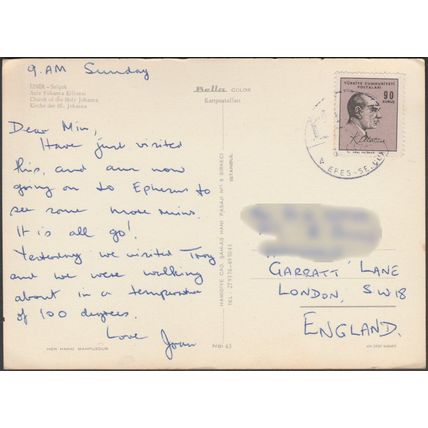 9.AM Sunday
İZMİR - Selçuk
Aziz Yohanna Kilisesi
Church of the Holy Johanna
Kirche der Hl. Johanna
Bella COLOR
Kartpostalları
TÜRKİYE CUMHURİYETİ
POSTALARI
90
KURUŞ
EFES-SELÇUK
Dear Min,
Have just visited
this, and am now
going on to Ephesus to
see some more ruins.
It is all go!
Yesterday we visited Troy
and we were walking
about in a temperature
of 100 degrees.
Love Joan
HAMIDİYE CAD. ŞAHLAS HANI PASAJI Nº 5 SİRKECİ
İSTANBUL
GARRATT LANE
LONDON, SW18
ENGLAND.
HER HAKKI MAHFUZDUR